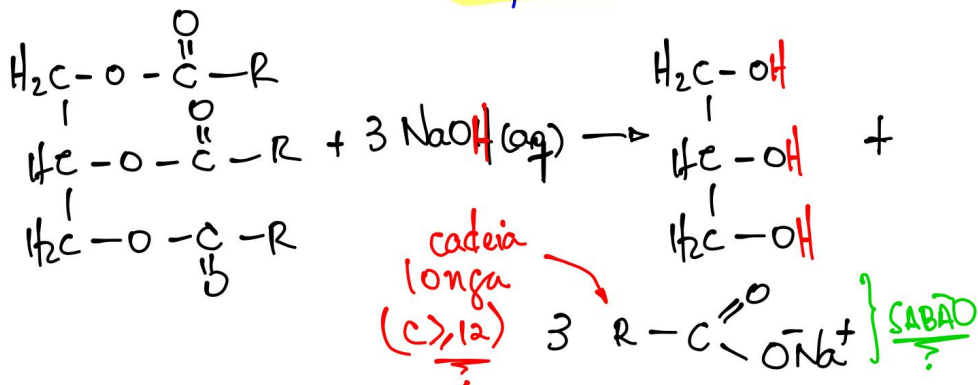 O
H₂C-O-C-R
O
HC-O-C-R + 3 NaOH (aq) →
H₂C-O-C-R
O
H₂C-OH
HC-OH +
H₂C-OH
cadeia
longa
(C≥12)
?
3 R-C=O
O⁻Na⁺ } SABÃO
?